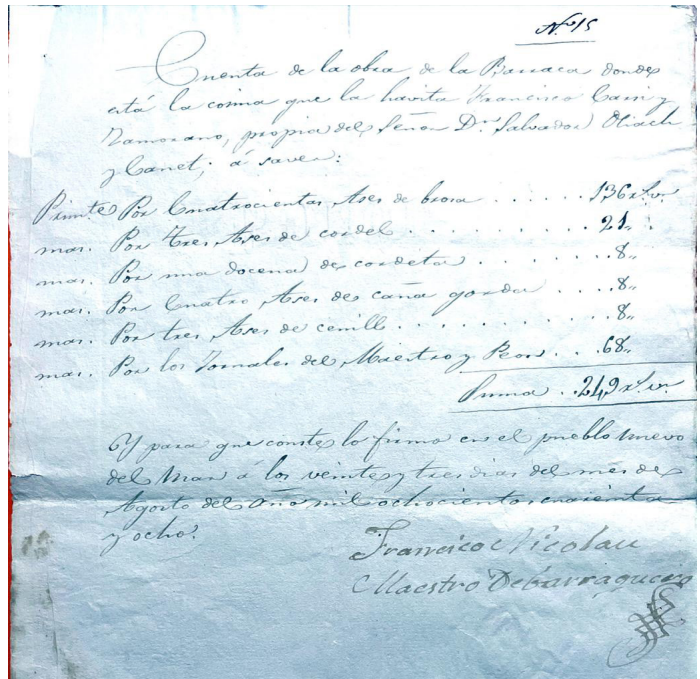 Nº 15
Cuenta de la obra de la Barraca donde
está la coima que la havita Francisco Carri y
Zamorano, propia del Señor Dn. Salvador Oliach
y Canet; á saver:
Primte Por Cuatrocientas Ases de brosa . . . . . . 136 rs. vn.
mas. Por tres Ases de cordel . . . . . . . . . 21,,
mas. Por una docena de cordeta . . . . . . . 8,,
mas. Por Cuatro Ases de caña gorda . . . . . 8,,
mas. Por tres Ases de cenill . . . . . . . . . 8,,
mas. Por los Jornales del Maestro y Peon . . . 68,,
Suma . . 249 rs. vn.
Y para que conste lo firmo en el pueblo nuevo
del Mar á los veinte y tres dias del mes de
Agosto del año mil ochocientos cuaienta
y ocho.
Francisco Nicolau
Maestro Debarraquero